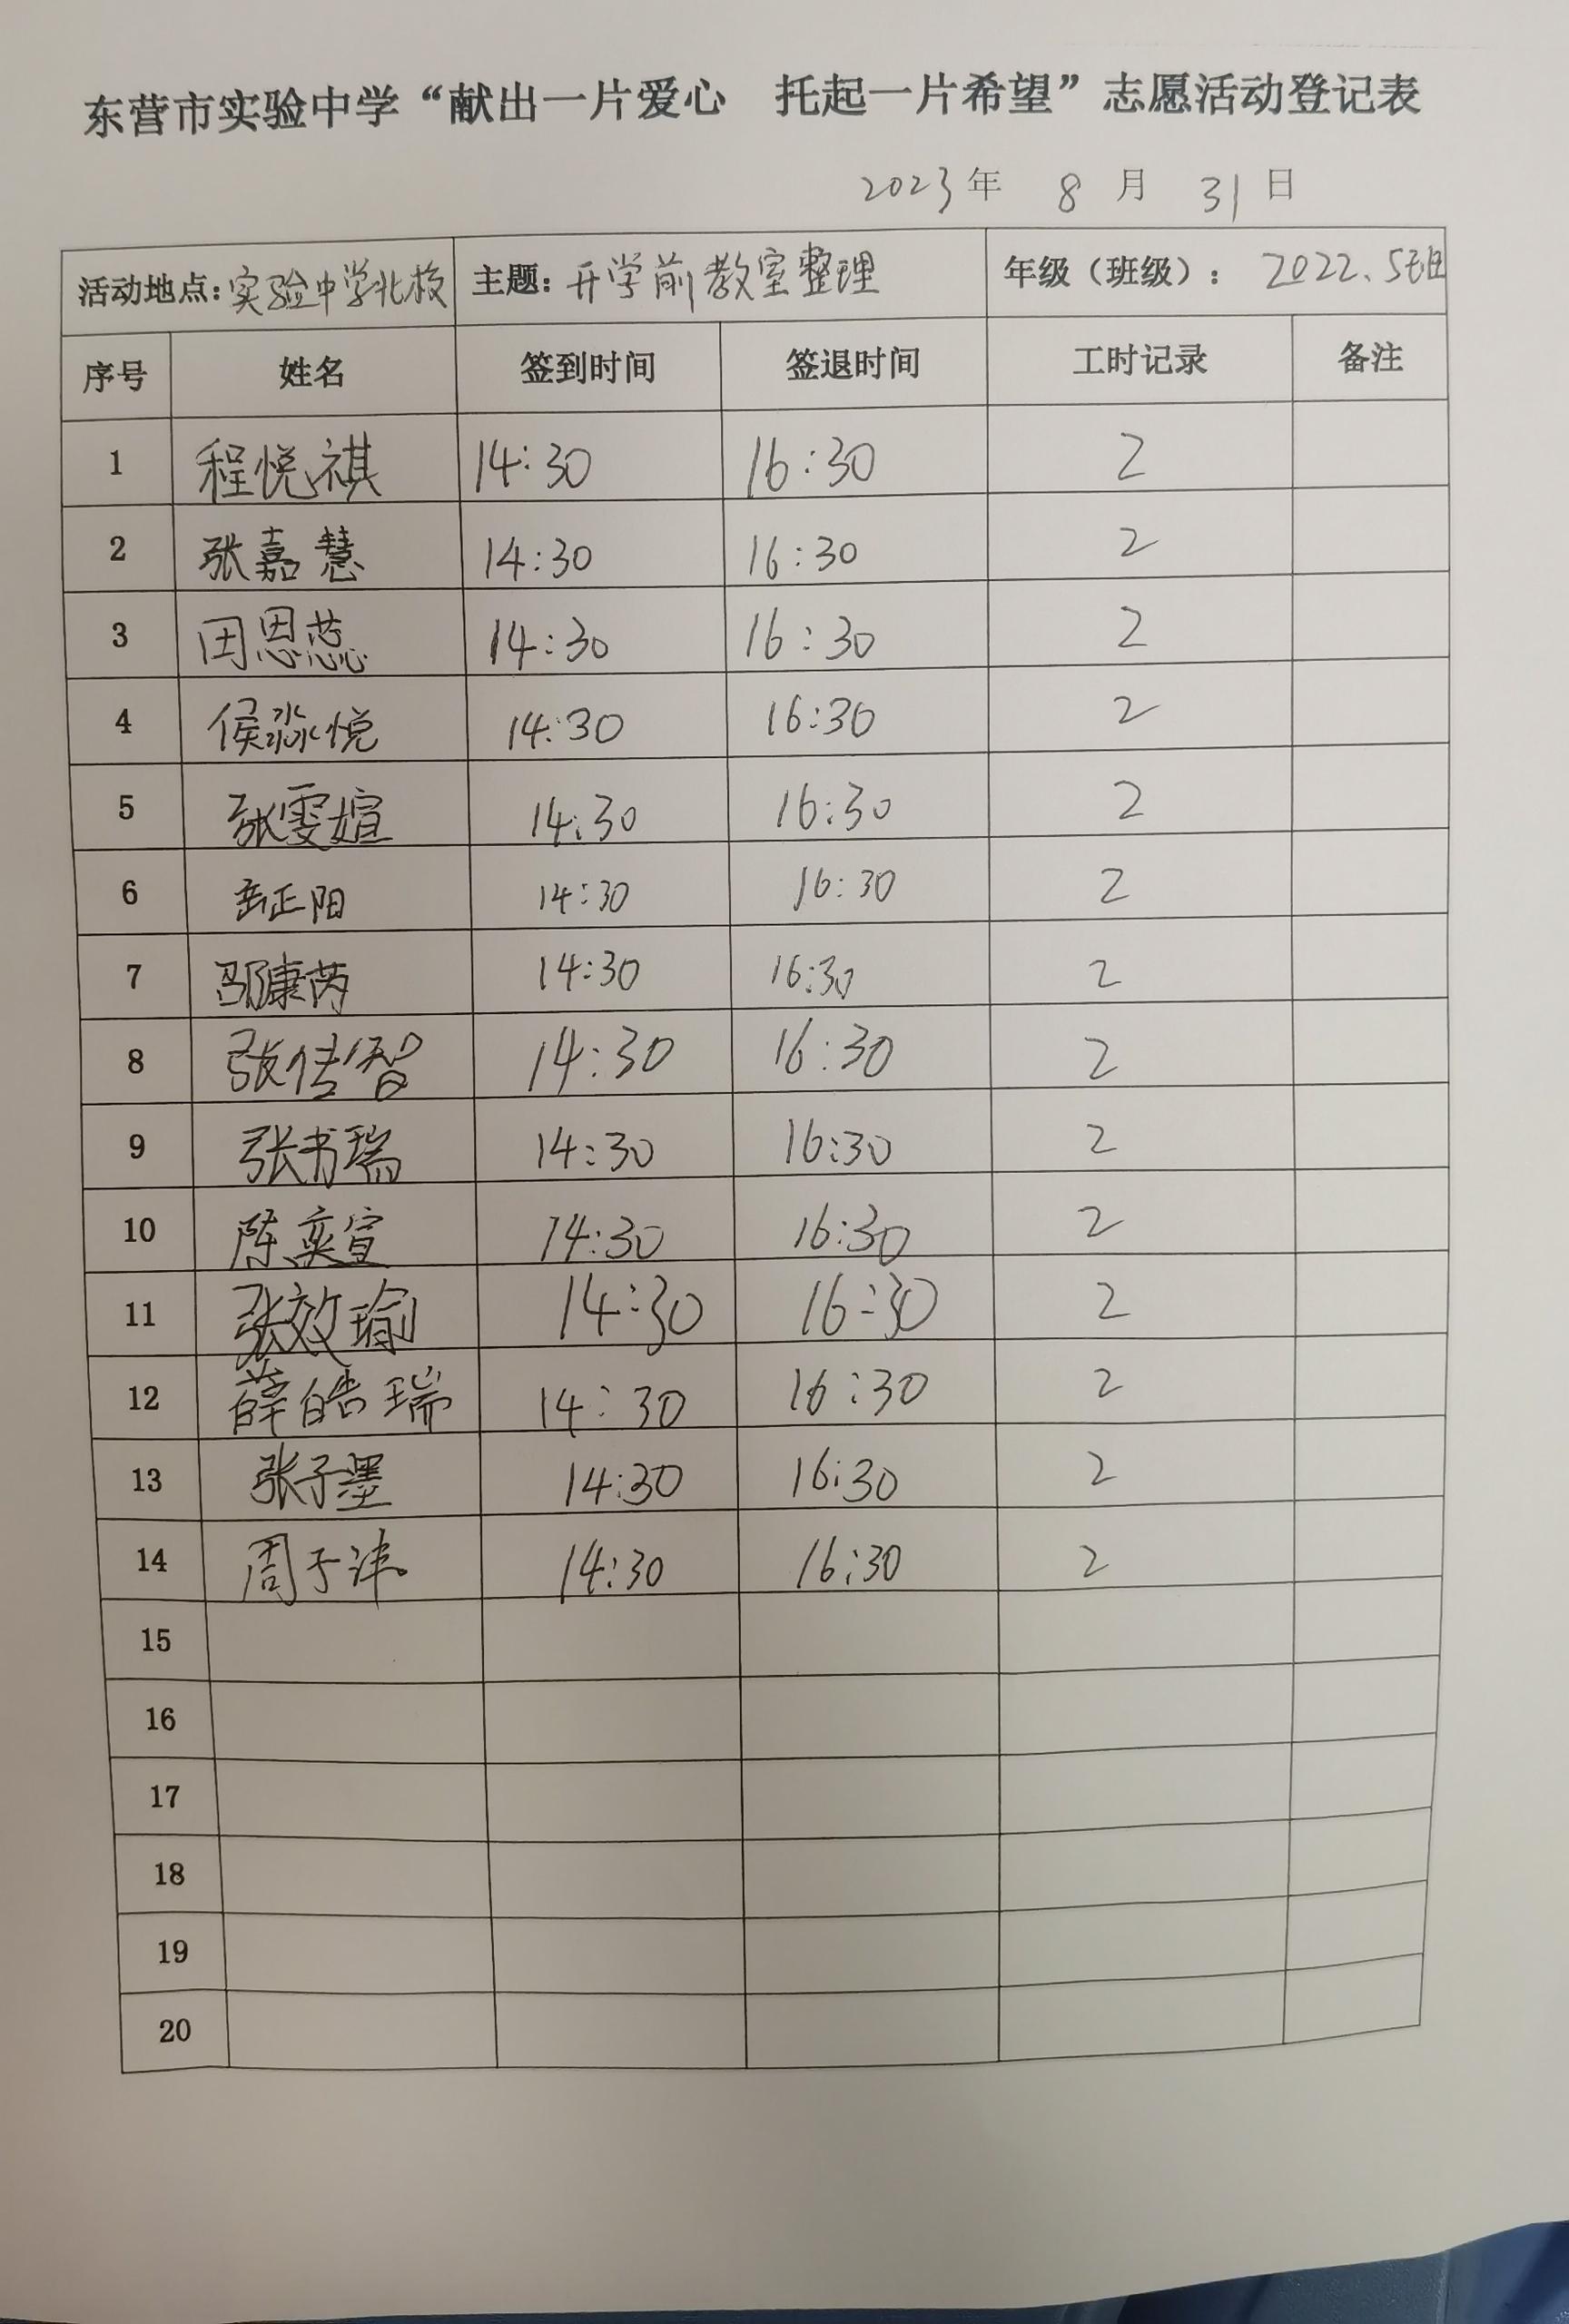 东营市实验中学“献出一片爱心 托起一片希望”志愿活动登记表
2023年 8 月 31 日
活动地点：实验中学北校 主题：开学前教室整理 年级（班级）：2022.5班
序号 姓名 签到时间 签退时间 工时记录 备注
1 程悦祺 14:30 16:30 2
2 张嘉慧 14:30 16:30 2
3 田恩蕊 14:30 16:30 2
4 侯淼悦 14:30 16:30 2
5 张雯媗 14:30 16:30 2
6 岳正阳 14:30 16:30 2
7 邵康芮 14:30 16:30 2
8 张传智 14:30 16:30 2
9 张书瑞 14:30 16:30 2
10 陈奕宣 14:30 16:30 2
11 张效瑜 14:30 16:30 2
12 薛皓瑞 14:30 16:30 2
13 张子墨 14:30 16:30 2
14 周子 14:30 16:30 2
15
16
17
18
19
20